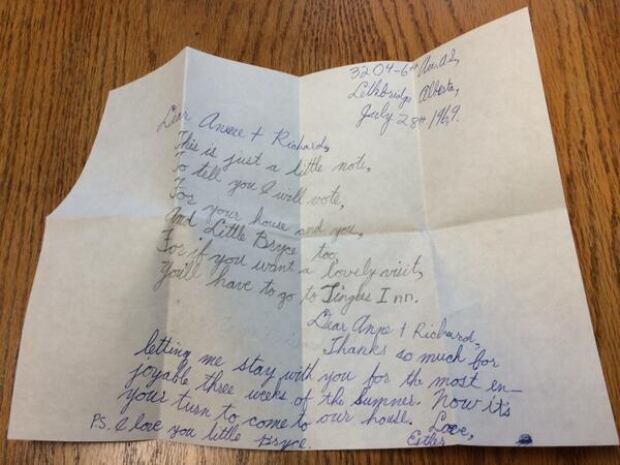 3204-6th Ave. A S,
Lethbridge Alberta,
July 28th 1969.
Dear Anne + Richard,
This is just a little note,
To tell you I will vote,
For your house and you,
And Little Bryce too,
For if you want a lovely visit,
You'll have to go to Jingles Inn.
Dear Anne + Richard,
Thanks so much for
letting me stay with you for the most en-
joyable three weeks of the Summer. Now it's
your turn to come to our house.
Love,
P.S. I love you little Bryce.
Esther